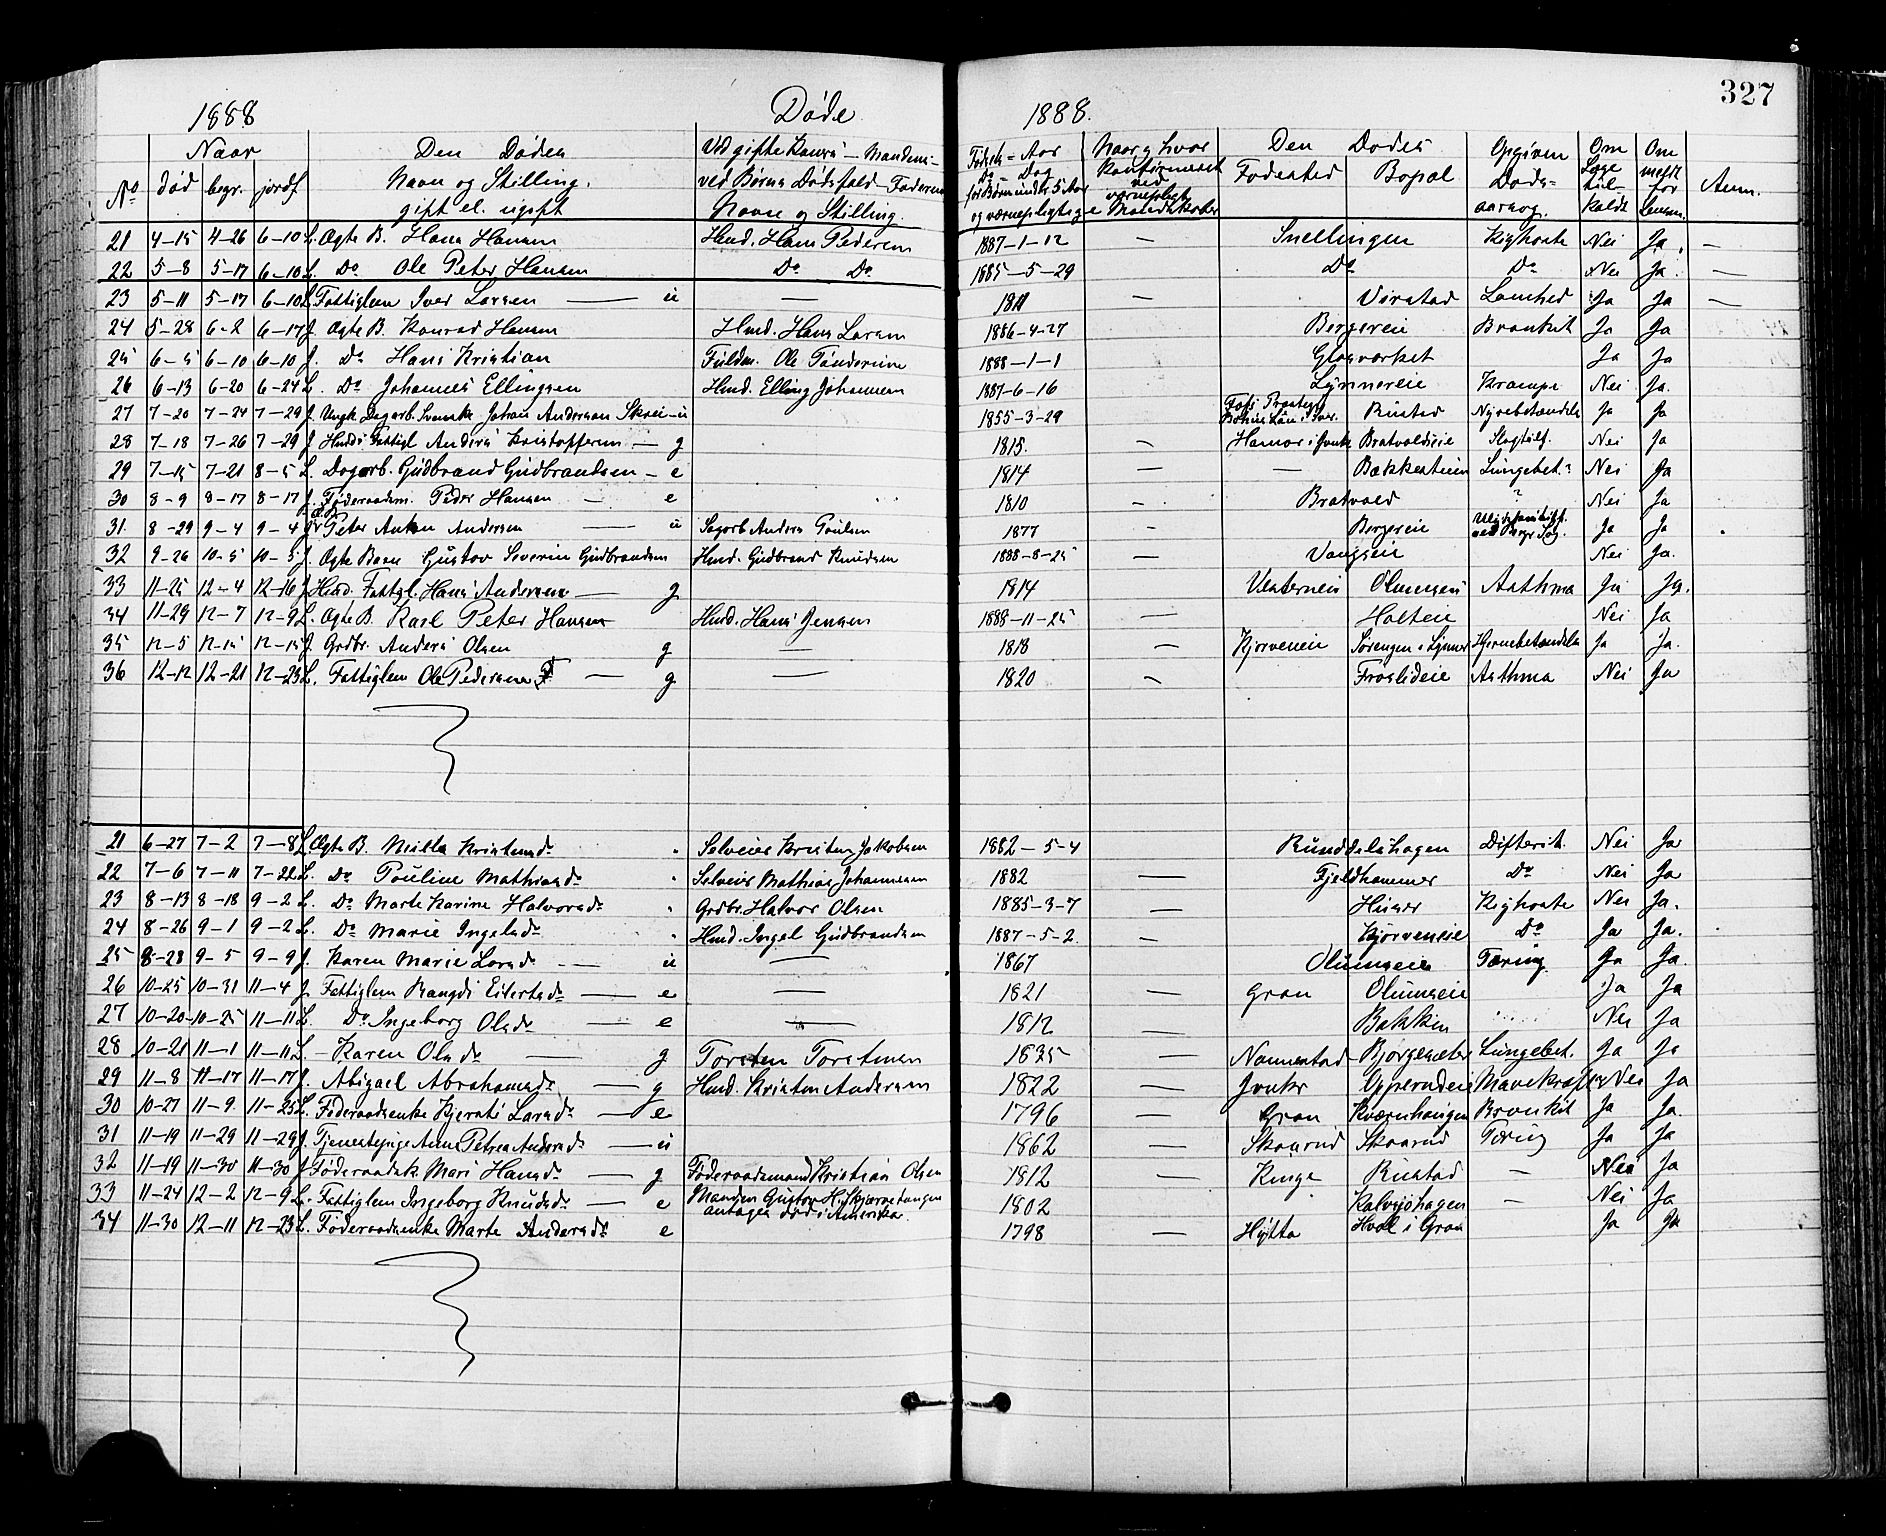 327
1888 Døde 1888.
Naar Den Dødes Ved gifte Koners – Mandens – Fødsels-Aar Naar og hvor Den Dødes Opgiven Om Om
No død begr. jordf. Navn og Stilling. ved Børns Dødsfald – Faderens Do – Dag konfirmeret Fødested Bopæl Døds- Læge meldt Anm.
gift el. ugift Navn og Stilling. for Børn under 5 Aar ved aarsag. til- for
og værnepligtige Mandskaber kaldt Lensm.
21 4–15 4–26 6–10 L. Ægte B. Hans Hansen Husd. Hans Pedersen 1887–1–12 — Snellingen Kighoste Nei Ja. —
22 5–8 5–17 6–10 L. Do Ole Peter Hansen Do Do 1885–5–29 Do Do Nei Ja. —
23 5–11 5–17 6–10 L. Fattiglem Iver Larsen — u — 1811 — Virstad Ja Ja —
24 5–28 6–2 6–17 J. Ægte B. Konrad Hansen Husd. Hans Larsen 1886–4–27 Bergereie Bronkit Ja Ja
25 6–5 6–10 6–10 J. Do Hans Kristian Ole 1888–1–1 Glasværket Ja Ja
26 6–13 6–20 6–24 L. Do Johannes Ellingsen Husd. Elling Johannesen 1887–6–16 Lynnereie Krampe Nei Ja.
27 7–20 7–24 7–29 J. Ungk. Dagarb. Svenske Johan Andersson Skrei u 1855–3–29 Rustad Nyrebetændelse Ja Ja
28 7–18 7–26 7–29 J. Husd. Fattigl. Anders Kristoffersen — g 1815. — Hamar Bratvoldseie Slagtilf. Nei Ja
29 7–15 7–21 8–5 L. Dagarb. Gudbrand Gudbrandsen — e 1814 — — Bækkesteien Lungebet. Nei Ja
30 8–9 8–17 8–17 J. Føderaadsm. Peder Hansen — e 1810 — Bratvold ? Nei Ja
31. 8–29 9–4 9–4 Peter Anton Andersen — u Sagarb Anders Poulsen 1877 — Bergereie Ja Ja
32 9–26 10–5 10–5 J. Ægte Barn Gustav Severin Gudbrandsen Husd. Gudbrand Knudsen 1888–8–25 — Vangseie Nei Ja.
33 11–25 12–4 12–16 J. Husd. Fattigl. Hans Andersen — g 1814 — Vesterneie Olumseie Asthma Ja Ja.
34 11–29 12–7 12–9 L. Ægte B. Karl Peter Hansen Husd. Hans Jensen 1888–11–25 — Holteie Nei Ja
35 12–5 12–15 12–15 J. Grdbr. Anders Olsen g — 1818 — Kjørveneie Sørengen i Lynner Hjernebetændelse Ja Ja.
36 12–12 12–21 12–23 L. Fattiglem Ole Pedersen — g — 1820 — Froslideie Asthma Nei Ja
21 6–27 7–2 7–8 L. Ægte B. Milla Kristensd. Selveier Kristen Jakobsen 1882–5–4 — Runddelshagen Difterit. Nei Ja
22 7–6 7–11 7–22 L. Do Pouline Mathiasd. Selveier Mathias Johannesen 1882 — Fjeldhammer Do Nei Ja
23 8–13 8–18 9–2 L. Do Marte Karine Halvorsd. Grdbr. Halvor Olsen 1885–3–7 — Huser Kighoste Nei Ja.
24 8–26 9–1 9–2 L. Do Marie Ingelsd. Husd. Ingel Gudbrandsen 1887–5–2. — Kjørveneie Do Ja Ja.
25 8–28 9–5 9–9 J. Karen Marie Larsd. — u — 1867 Olumseie Tæring Ja Ja.
26 10–25 10–31 11–4 J. Fattiglem Rangdi Eilertsd. — e — 1821 — Gran Olumseie Ja Ja
27 10–20 10–25 11–11 L. Do Ingeborg Olsd. — e — 1812 — Bakken Nei Ja
28 10–21 11–1 11–11 L. Karen Olsd. — g Torsten Torstensen 1835 — Nannestad Bjørgesæter Lungebet. Ja Ja
29 11–8 11–17 11–17 J. Abigael Abrahamsd. — g Husd. Kristen Andersen 1822 — Jevnker Opperudeie Mavekræft Nei Ja
30 10–27 11–9 11–25 L. Føderaadsenke Kjersti Larsd. — e 1796 — Gran Kværnhaugen Bronkit Ja Ja.
31 11–19 11–29 11–29 J. Tjenestepige Anne Petrea Andersd. — u 1862 — Skaarud Skaarud Tæring Ja Ja
32 11–19 11–30 11–30 J. Føderaadsk. Mari Hansd. — g Føderaadsmand Kristian Olsen 1812 — Kinge Rustad — Nei Ja
33 11–24 12–2 12–9 L. Fattiglem Ingeborg Knudsd. — e Manden Gustav H. Skjærvetangen 1802 — Kalvsjøhagen — Nei Ja
antages død i Amerika.
34 11–30 12–11 12–23 L. Føderaadsenke Marte Andersd. e 1798 — Hytta Hvæl i Gran Ja Ja